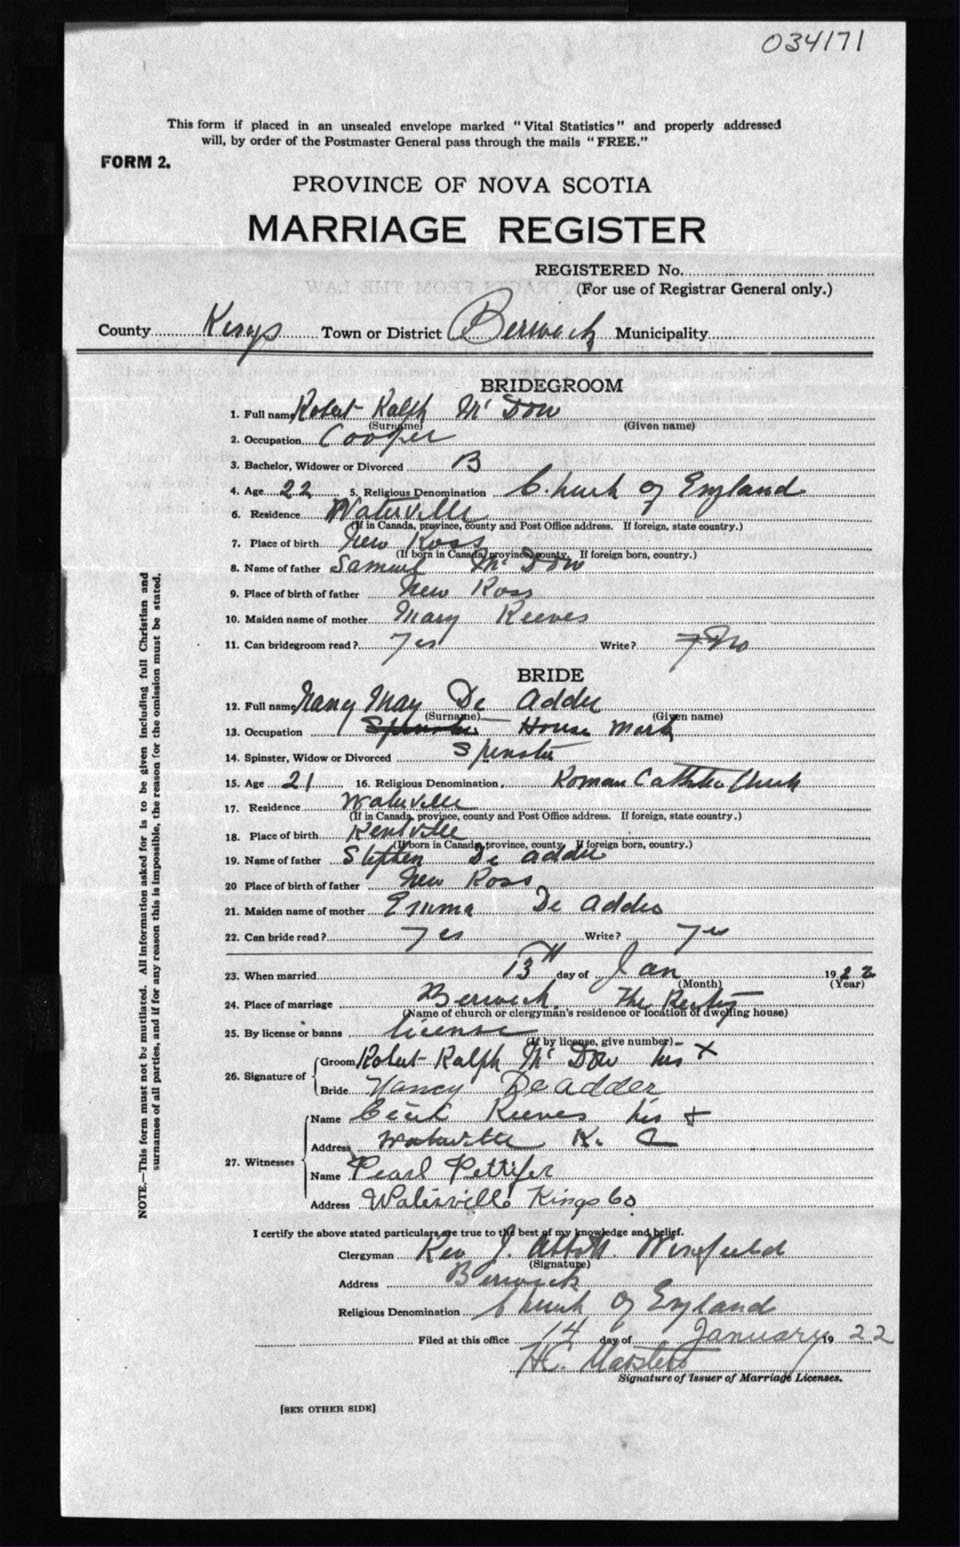 034171
This form if placed in an unsealed envelope marked "Vital Statistics" and properly addressed
will, by order of the Postmaster General pass through the mails "FREE."
FORM 2.
PROVINCE OF NOVA SCOTIA
MARRIAGE REGISTER
REGISTERED No.
(For use of Registrar General only.)
County Kings Town or District Berwick Municipality
BRIDEGROOM
1. Full name Robert Ralph Mc Dow
(Surname) (Given name)
2. Occupation Cooper
3. Bachelor, Widower or Divorced B
4. Age 22 5. Religious Denomination Church of England
6. Residence Waterville
(If in Canada, province, county and Post Office address. If foreign, state country.)
7. Place of birth New Ross
(If born in Canada, province, county. If foreign born, country.)
8. Name of father Samuel Mc Dow
9. Place of birth of father New Ross
10. Maiden name of mother Mary Reeves
11. Can bridegroom read? Yes Write? No
BRIDE
12. Full name Nancy May De Adder
(Surname) (Given name)
13. Occupation Spinster House Work
14. Spinster, Widow or Divorced Spinster
15. Age 21 16. Religious Denomination Roman Catholic Church
17. Residence Waterville
(If in Canada, province, county and Post Office address. If foreign, state country.)
18. Place of birth Kentville
(If born in Canada, province, county. If foreign born, country.)
19. Name of father Stephen De Adder
20 Place of birth of father New Ross
21. Maiden name of mother Emma De Adder
22. Can bride read? Yes Write? Yes
23. When married 13th day of Jan 1922
(Month) (Year)
24. Place of marriage Berwick The Rectory
(Name of church or clergyman's residence or location of dwelling house)
25. By license or banns license
(If by license, give number)
26. Signature of
Groom Robert Ralph Mc Dow his X
Bride Nancy DeAdder
27. Witnesses
Name Cecil Reeves his +
Address Waterville K. C
Name Pearl Pettifer
Address Waterville Kings Co.
I certify the above stated particulars are true to the best of my knowledge and belief.
Clergyman Rev J. Abbott Winfield
(Signature)
Address Berwick
Religious Denomination Church of England
Filed at this office 14 day of January 1922
H.C. Masters
Signature of Issuer of Marriage Licenses.
[SEE OTHER SIDE]
NOTE.—This form must not be mutilated. All information asked for is to be given including full Christian and
surnames of all parties, and if for any reason this is impossible, the reason for the omission must be stated.